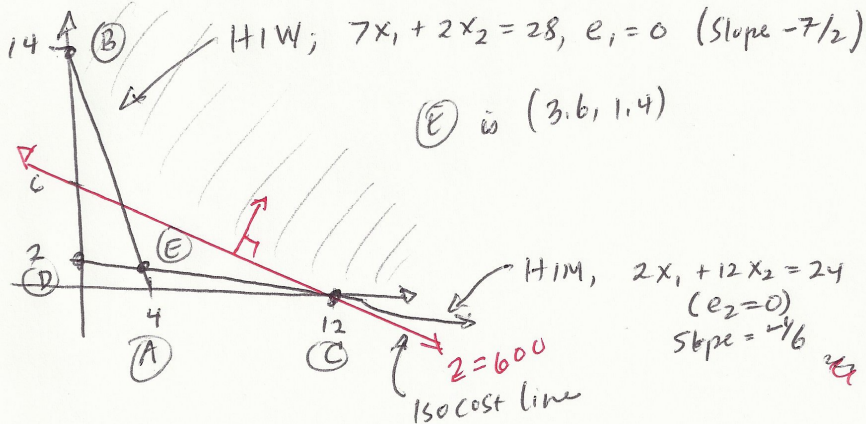 14 B HIW; 7x₁ + 2x₂ = 28, e₁ = 0 (Slope -7/2)
E is (3.6, 1.4)
6
E
2
D
HIM, 2x₁ + 12x₂ = 24
(e₂ = 0)
Slope = -1/6
4 12
A C
Z = 600
Isocost line